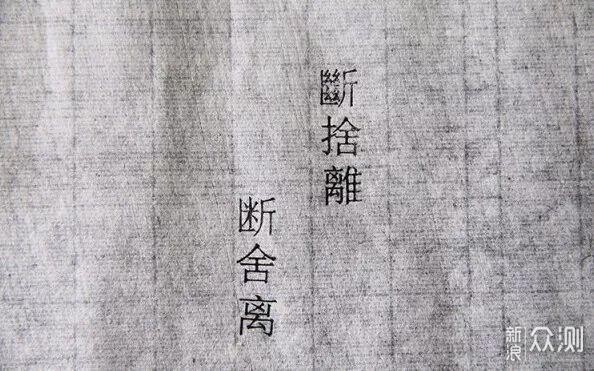 斷捨離
断舍离
新浪众测